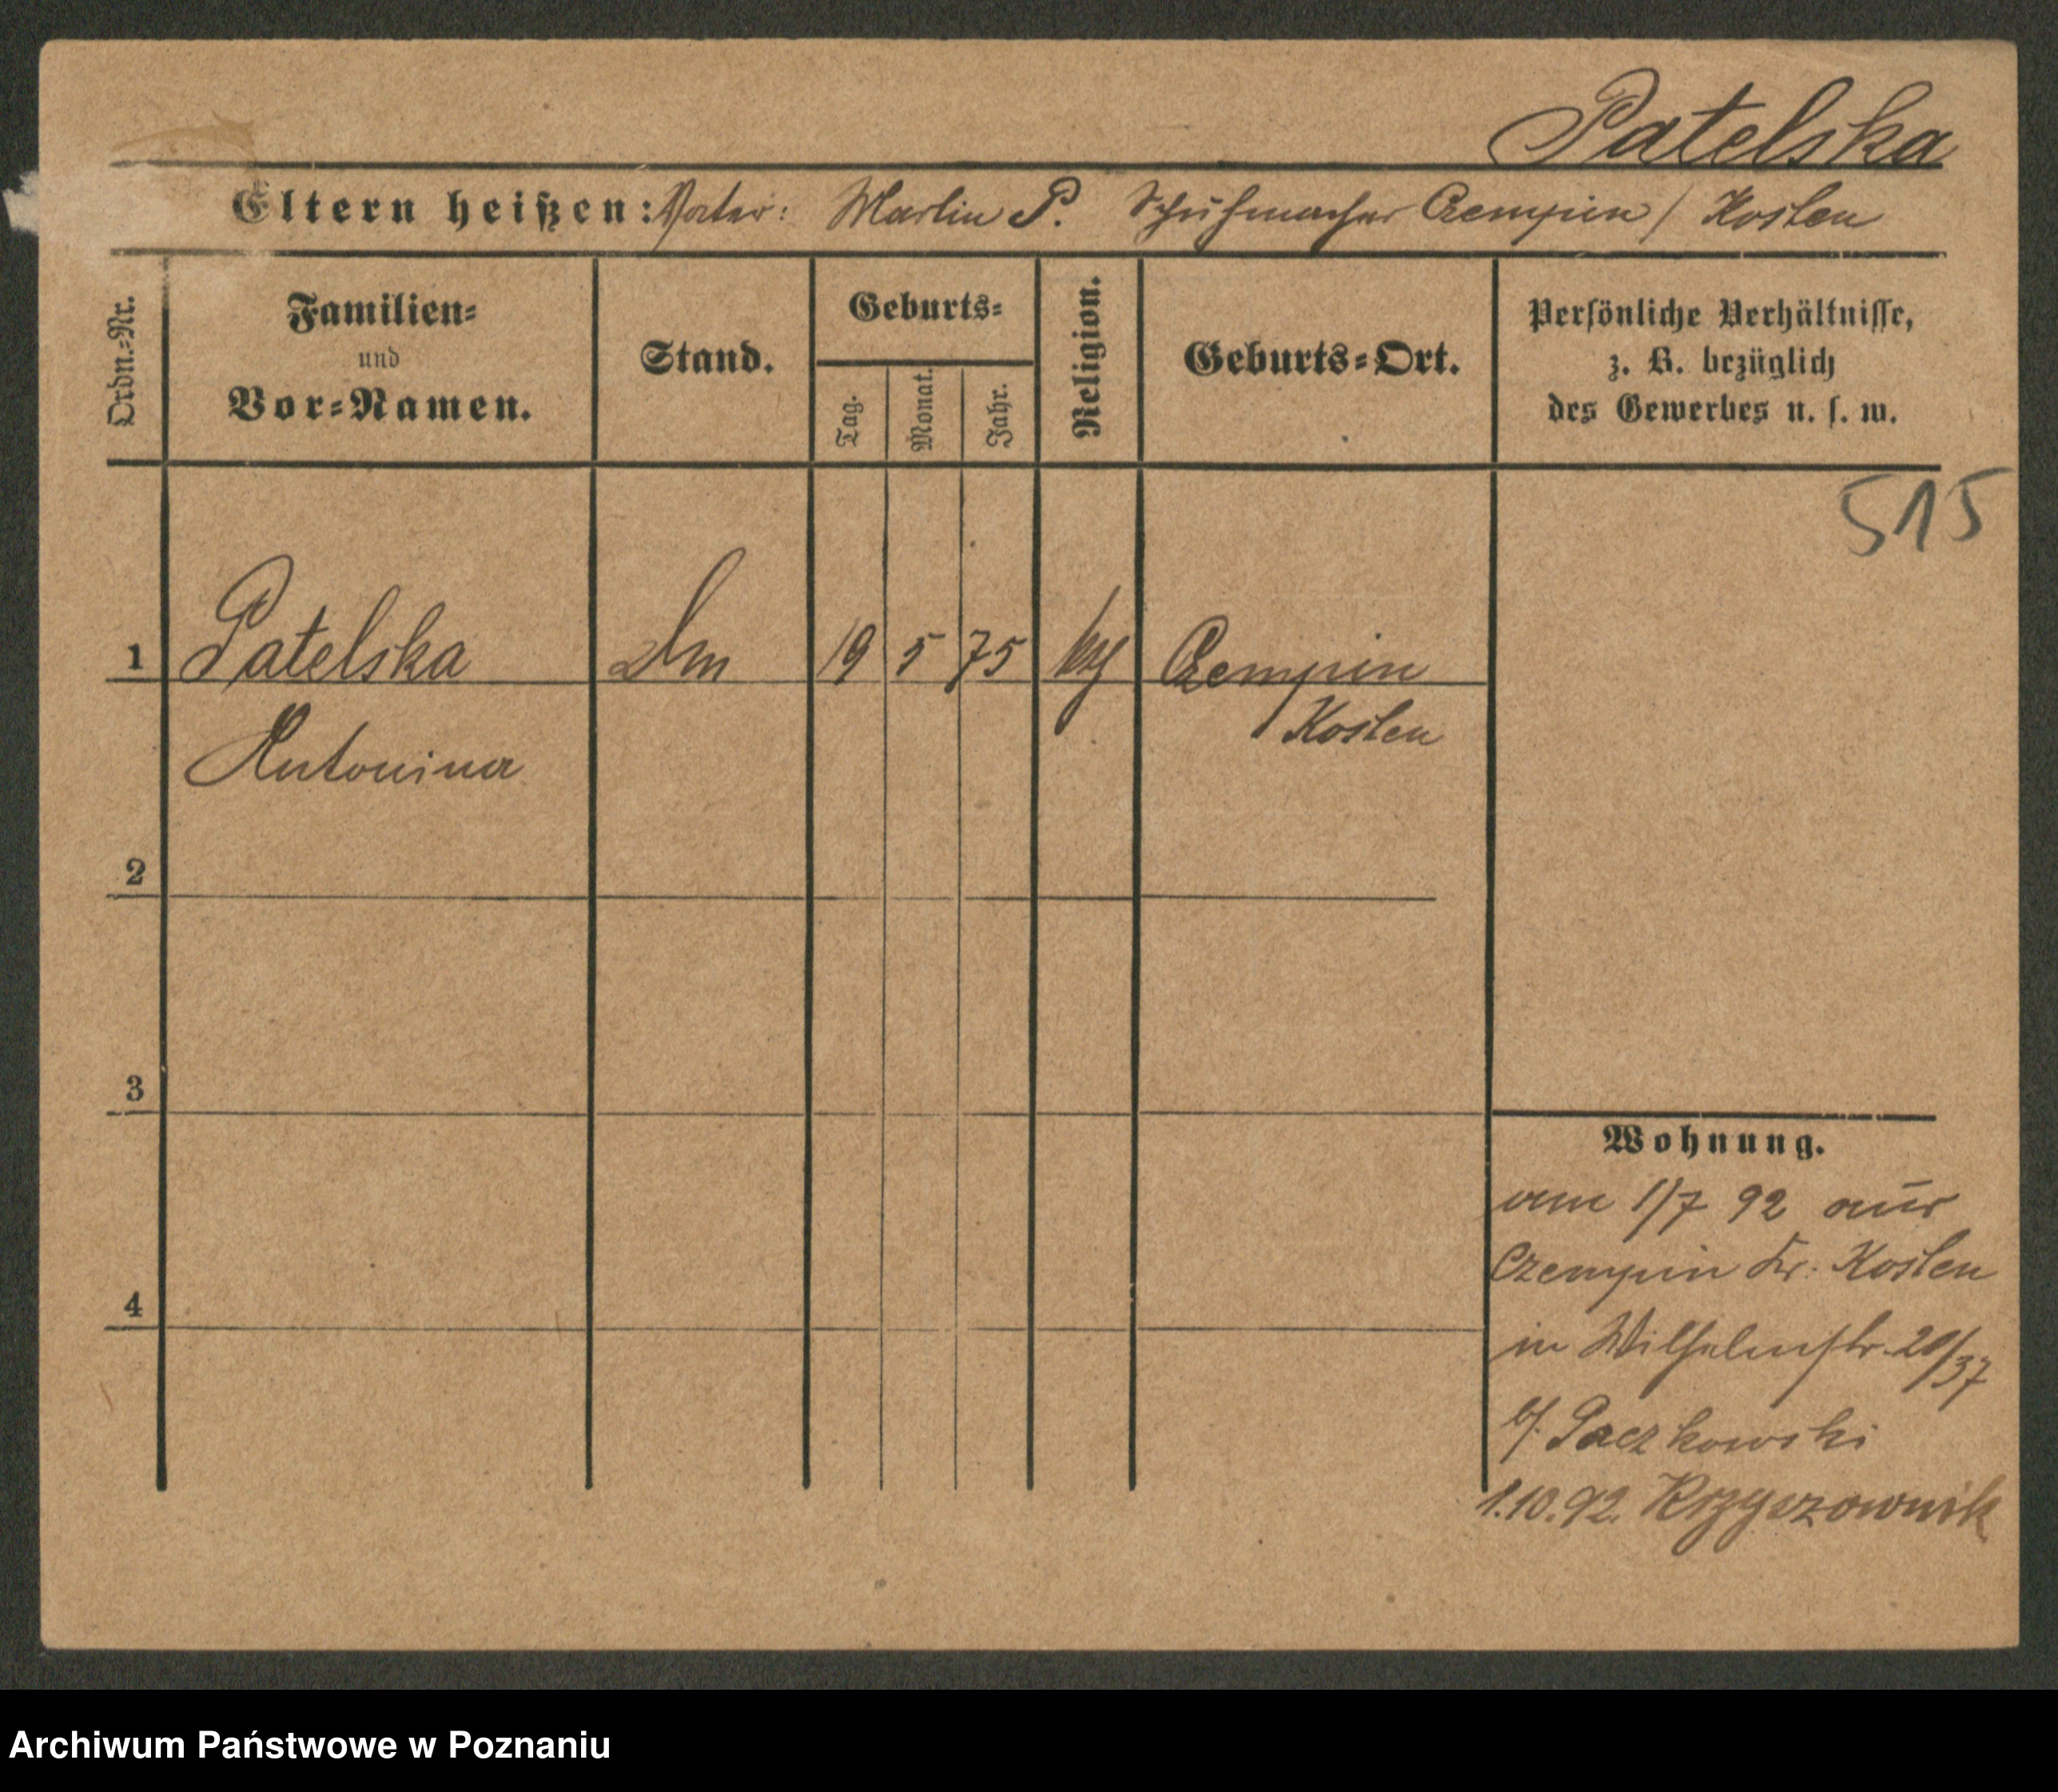 Patelska
Eltern heißen: Vater: Martin P. Schuhmacher Czempin / Kosten
Ordn.-Nr.
Familien-
und
Vor-Namen.
Stand.
Geburts-
Tag.
Monat.
Jahr.
Religion.
Geburts-Ort.
Persönliche Verhältnisse,
z. B. bezüglich
des Gewerbes u. s. w.
515
1 Patelska 19 5 75 Czempin
/ Kosten
Antonina
2
3
4
Wohnung.
am 1/7 92 aus
Czempin Kr. Kosten
in Wilhelmstr. 20/37
b/. Paczkowski
1.10.92. Krzyszownik
Archiwum Państwowe w Poznaniu